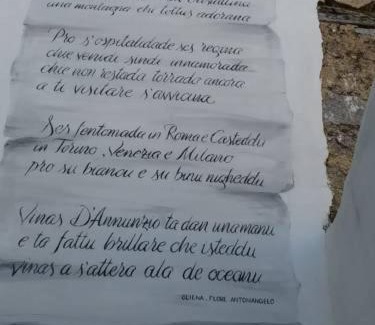 una montagna chi tottus adorana
Pro s'ospitalidade ses regina
chie venit sindi innamorada
chie non restada torrado ancora
a ti visitare s'avviana
Ses fentomada in Roma e Casteddu
in Torino, Venezia e Milano
pro su biancu e su binu nigheddu
Vinas D'Annunzio ta dau una manu
e ta fattu brillare che isteddu
vinas a s'attera ala de oceanu
OLIENA. FLORE ANTONANGELO